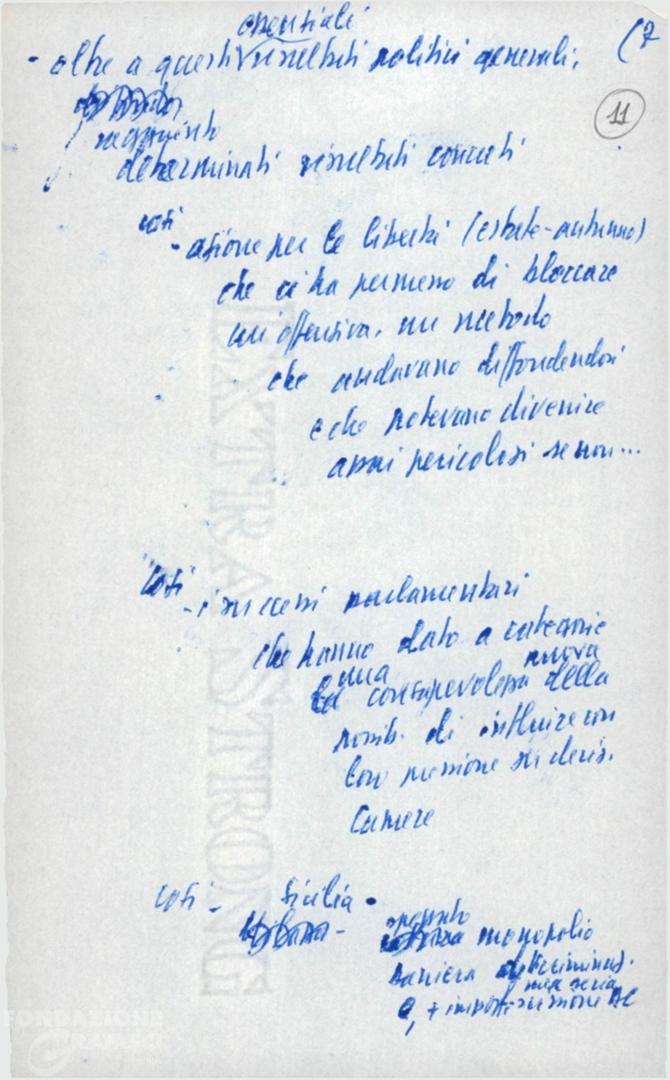 essenziali
- oltre a questi risultati politici generali,
(7
11
raggiunto
determinati risultati concreti
così
- azione per le libertà (estate-autunno)
che ci ha permesso di bloccare
un'offensiva, un metodo
che andavano diffondendosi
e che potevano divenire
assai pericolosi se non...
così
- i successi parlamentari
che hanno dato a categorie
una nuova
consapevolezza della
possib. di influire con
loro pressione su decis.
Camere
così - Sicilia -
spezzato
monopolio
barriera discriminaz.
e, + import.
EXTRA STRONG
FONDAZIONE
GRAMSCI